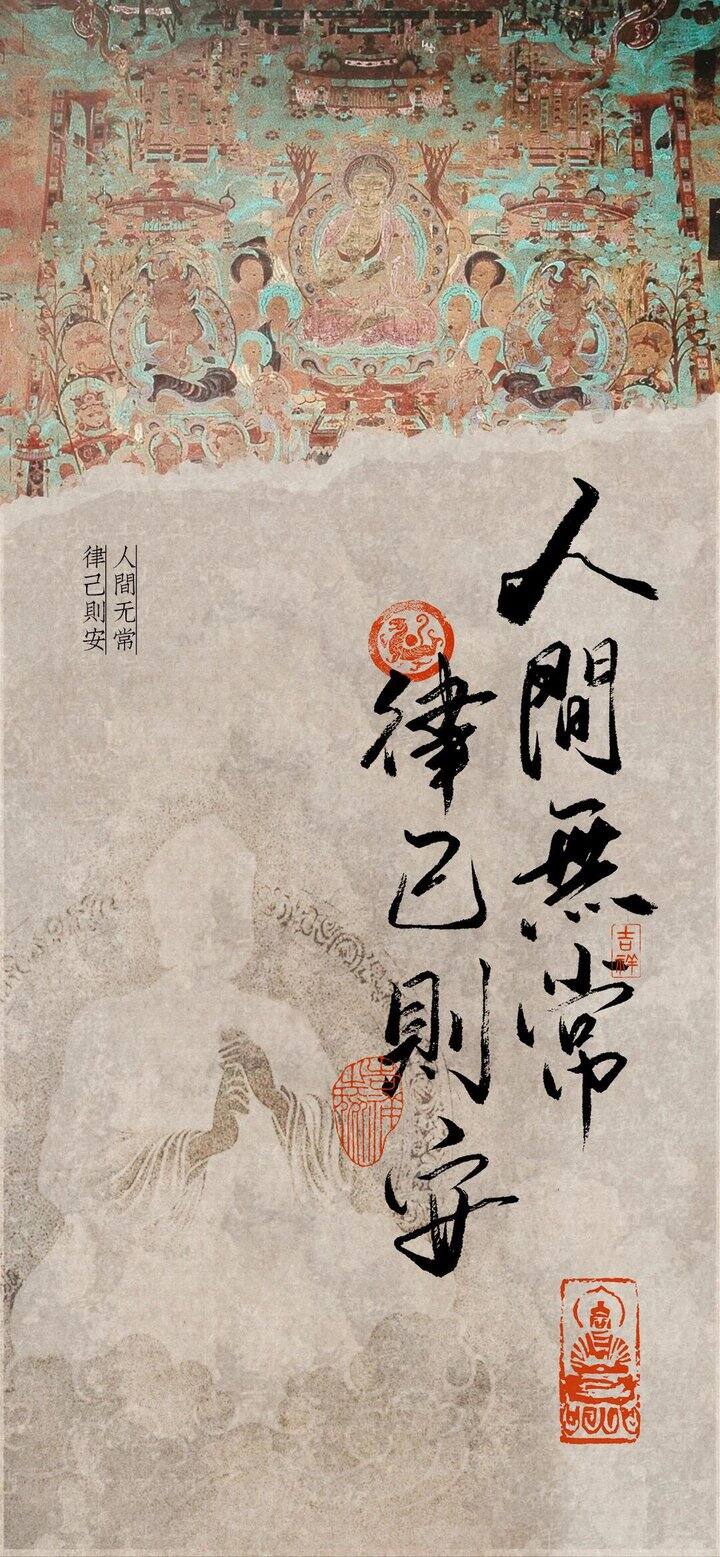 人間無常
律己則安
人間无常
律己則安
吉祥